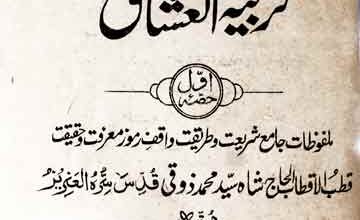 تربیة العشاق
حصہ اوّل
ملفوظات جامع شریعت و طریقت واقف رموز معرفت و حقیقت
قطب الاقطاب الحاج شاہ سیّد محمد ذوقی قدس سرّہ العزیز